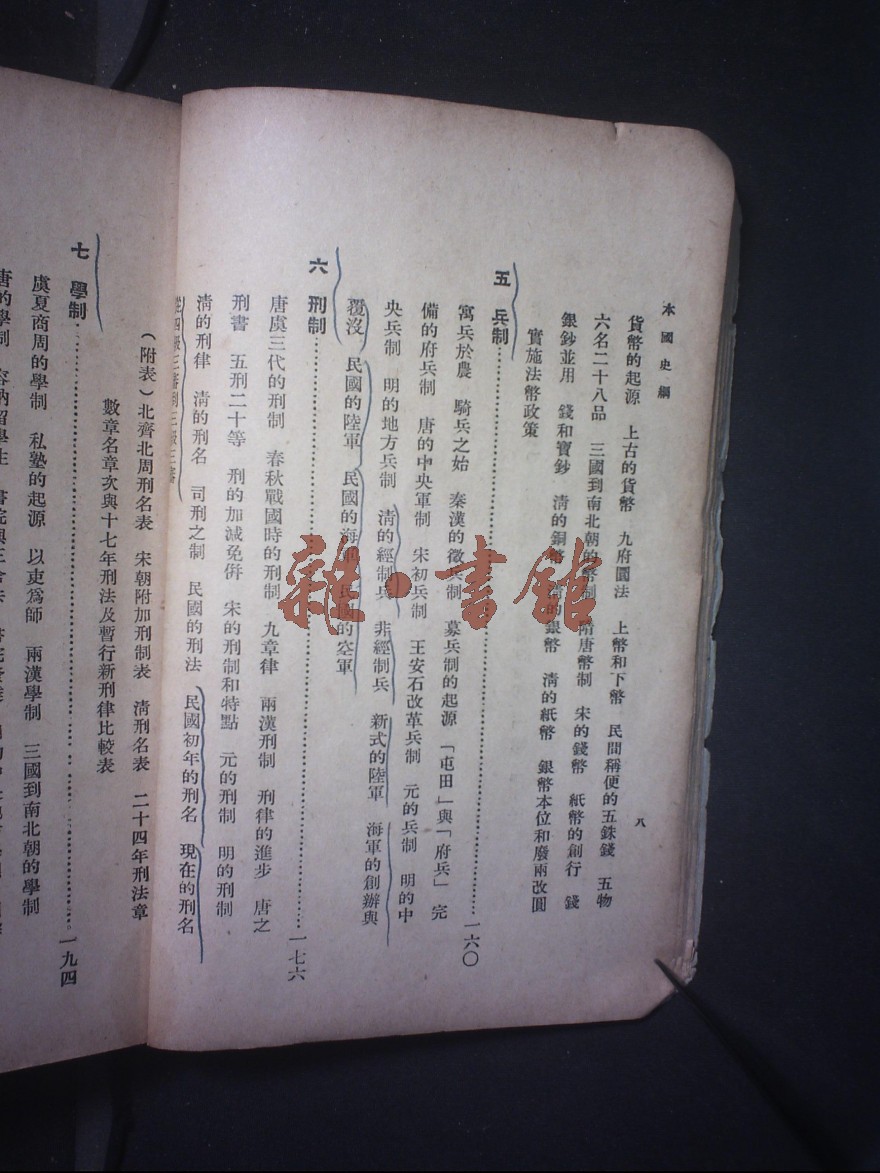 本國史綱
八
貨幣的起源　上古的貨幣　九府圜法　上幣和下幣　民間稱便的五銖錢　五物
六名二十八品　三國到南北朝的幣制　隋唐幣制　宋的錢幣　紙幣的創行　錢
銀鈔並用　錢和寶鈔　清的銅幣　清的銀幣　清的紙幣　銀幣本位和廢兩改圓
實施法幣政策
五　兵制……一六〇
寓兵於農　騎兵之始　秦漢的徵兵制　募兵制的起源　「屯田」與「府兵」　完
備的府兵制　唐的中央軍制　宋初兵制　王安石改革兵制　元的兵制　明的中
央兵制　明的地方兵制　清的經制兵　非經制兵　新式的陸軍　海軍的創辦與
覆沒　民國的陸軍　民國的海軍　民國的空軍
六　刑制……一七六
唐虞三代的刑制　春秋戰國時的刑制　九章律　兩漢刑制　刑律的進步　唐之
刑書　五刑二十等　刑的加減免併　宋的刑制和特點　元的刑制　明的刑制
清的刑律　清的刑名　司刑之制　民國的刑法　民國初年的刑名　現在的刑名
從四級三審制到三級三審
（附表）北齊北周刑名表　宋朝附加刑制表　清刑名表　二十四年刑法章
數章名章次與十七年刑法及暫行新刑律比較表
七　學制……一九四
虞夏商周的學制　私塾的起源　以吏爲師　兩漢學制　三國到南北朝的學制
唐的學制　容納留學生
雜·書館